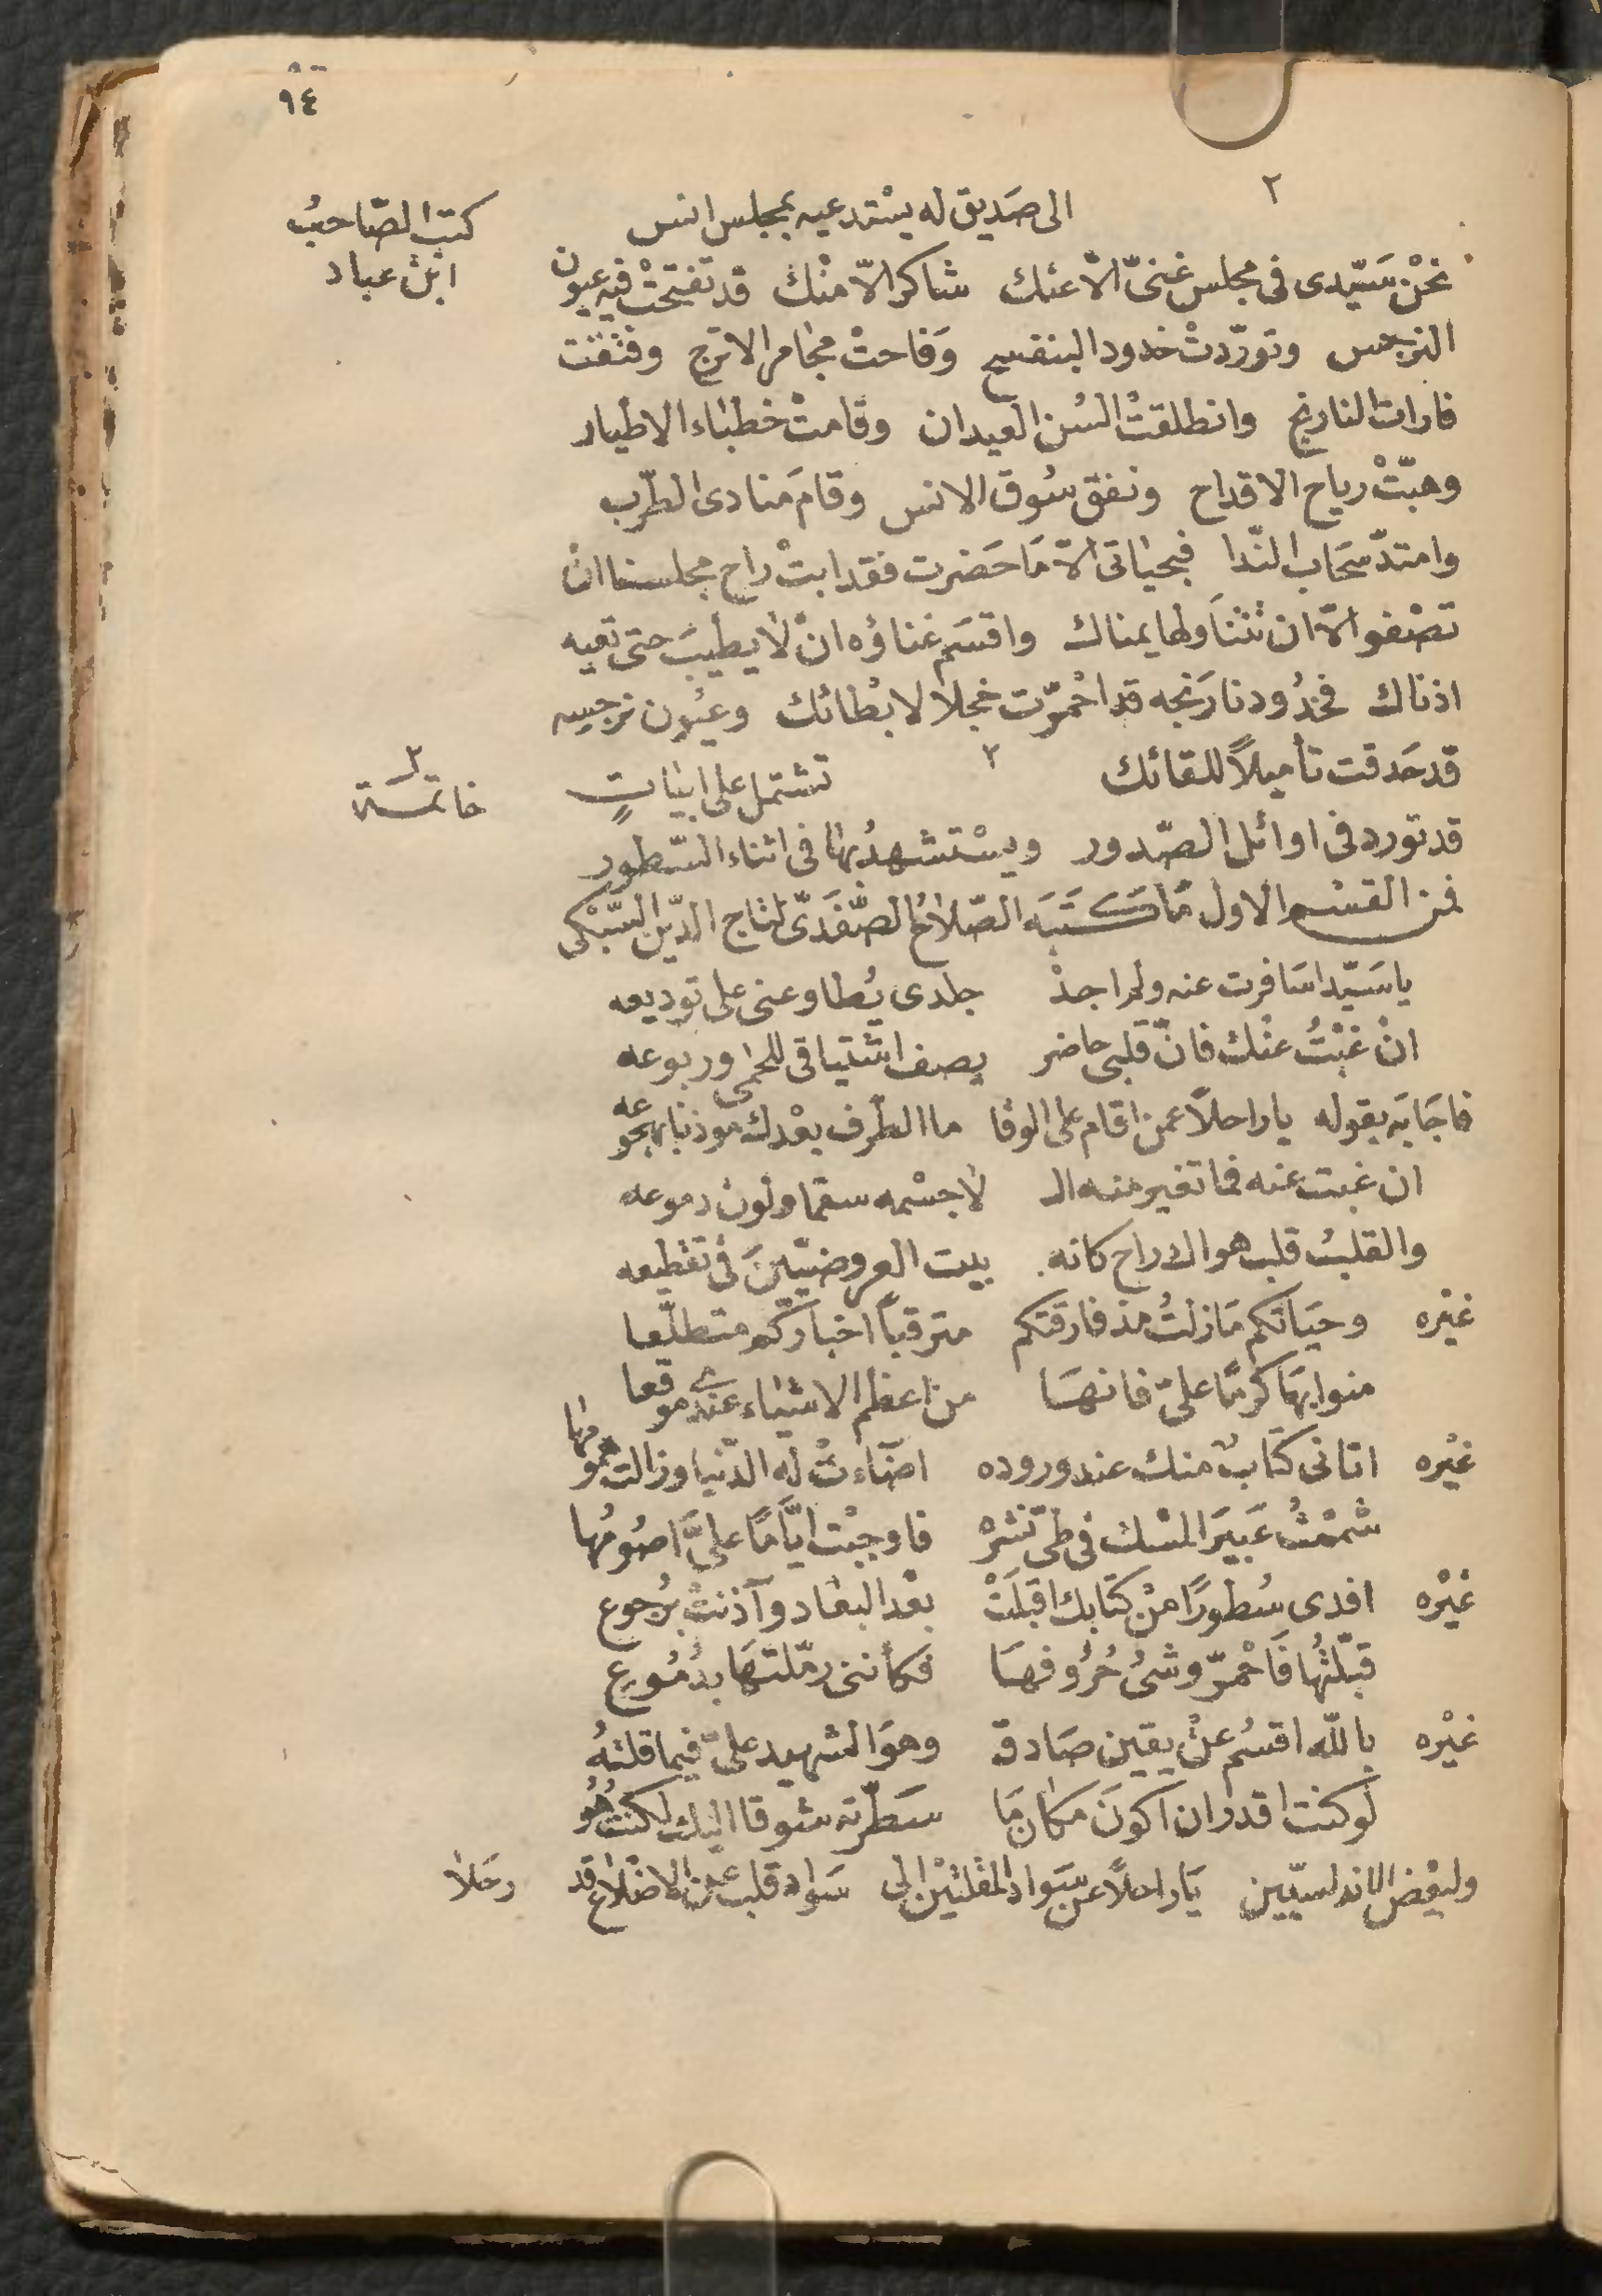 ٩٤
٢
الى صَديق له يسْتدعيه بمجلس انس
كتب الصّاحبُ
ابن عباد
نحْن سَيّدى فى مجلس غنىّ الّا عنك شاكر الّا منْك قد تفتحتْ فيه عيون
النرجس وتورّدتْ خدود البنفسج وَفاحتْ مجامر الاترج وفتقت
فارات النارنج وانطلقتْ السُن العيدان وقامتْ خطباء الاطيار
وهبّتْ رياح الاقداح ونفق سُوق الانس وقامَ منادى الطّرب
وامتدّ سحَاب النّدا فبحياتى الّا مَا حَضرت فقد ابتْ راح مجلسنا انْ
تصْفو الّا ان تتناولها يمناك واقسَم غناؤه انْ لا يطيبَ حتى تعيه
اذناك فخدُود نارَنجه قد احْمرّت خجلا لابْطائك وعيُون نرجسه
قد حَدقت تأميلاً للقائك
٢
تشتمل على ابيَاتٍ
٢
خاتمة
قد تورد فى اوائل الصّدور ويسْتشهدُ بها فى اثناء السّطور
فمن القسْم الاول مَا كتَبَه الصّلاحُ الصَّفَدىّ لتاج الدّين السّبْكى
يا سَيّدا سَافرت عنه ولم اجدْ جلدى يُطاوعنى على توديعه
انْ غبْتُ عنْك فانّ قلبى حاضر يصف اشتياقى للحمى وربوعه
فاجَابَه بقوله يا راحلاً عمن اقام على الوفا ما الطّرف بعْدك موذنا بهجوعه
ان غبت عنه فما تغير منه الـ لا جسْمه سقما ولون دموعه
والقلبُ قلب هواك راح كانه بيت العروضيّينَ فى تقْطيعه
غيْره وحيَاتكم مَا زلتُ مذ فارقتكم مترقباً اخباركم متطلّعا
منوا بهَا كرمًا علىّ فانهَا من اعظم الاشيَاء عندى موقعا
غيْره اتانى كتابٌ منك عند وروده اضآءتْ له الدّنيا وزالت همومها
شممْتُ عَبيرَ المسْك فى طىّ نشْرْ فاوجبْت ايَّامًا علىَّ اصُومُها
غيْره افدى سُطورًا منْ كتابك اقبلَتْ بعْد البعَاد وآذنتْ برُجوع
قبّلتُها فَاحْمرّ وشىُ حُرُوفهَا فكأننى رمّلتهَا بدُمُوع
غيْره باللّه اقسُم عنْ يقين صَادق وهوَ الشهيد علىّ فيما قلتهُ
لو كنت اقدر ان اكونَ مكان مَا سَطّرته شوقا اليك لكنتهُ هُو
ولبعْض الاندلسيّين يَا راحلاً عن سَواد المقلتيْن الى سَواد قلب عن الاضْلاع قد رحَلا